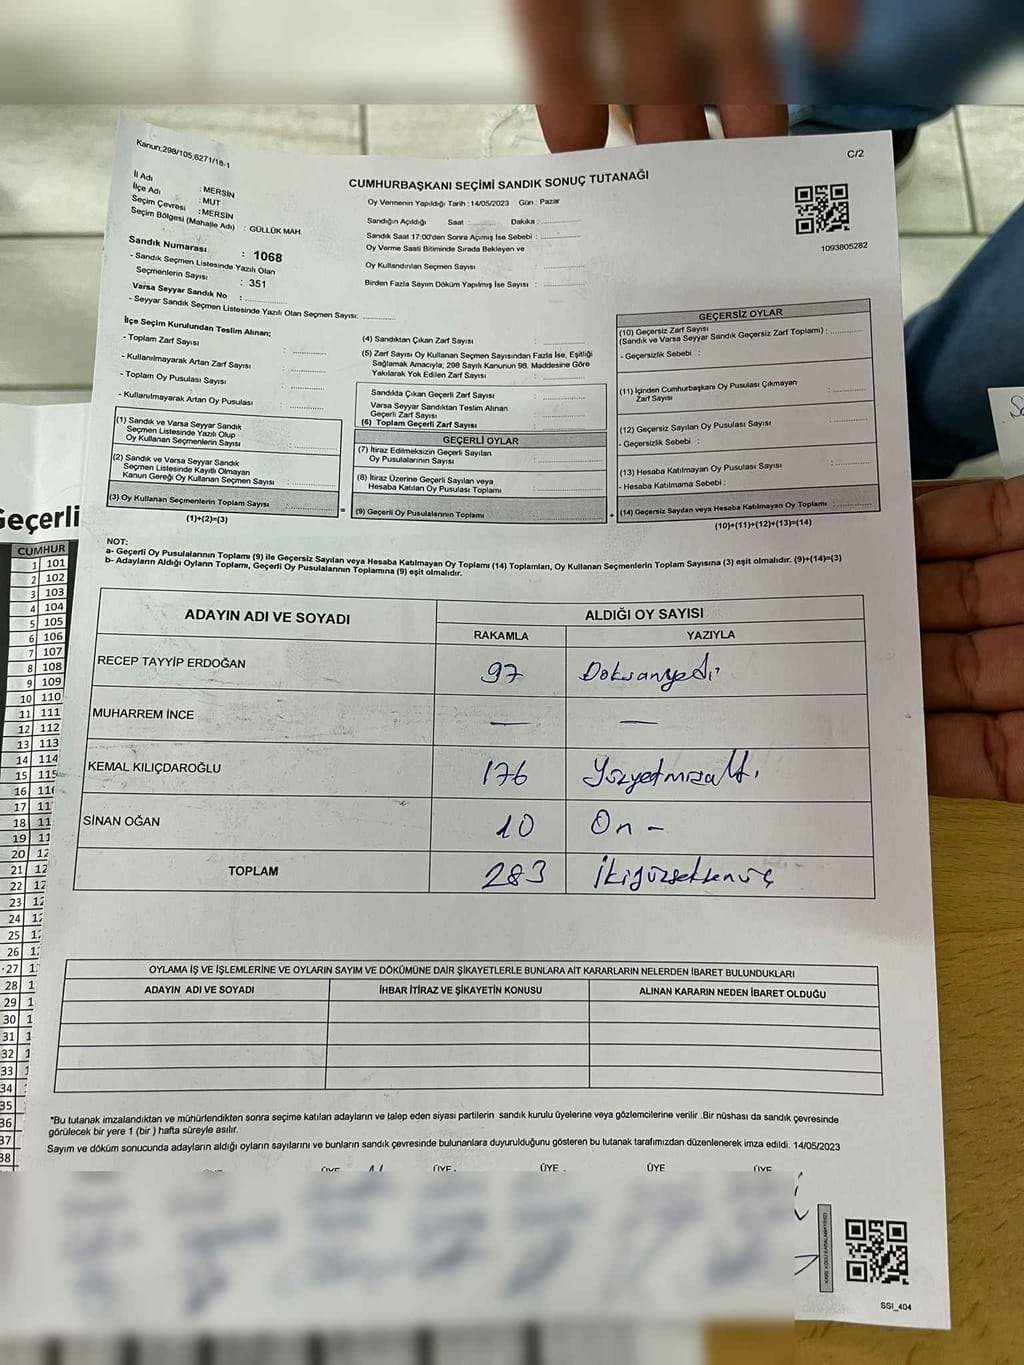 Kanun;298/105;6271/18-1
C/2
CUMHURBAŞKANI SEÇİMİ SANDIK SONUÇ TUTANAĞI
İl Adı : MERSİN
İlçe Adı : MUT
Seçim Çevresi : MERSİN
Seçim Bölgesi (Mahalle Adı) : GÜLLÜK MAH.
Sandık Numarası : 1068
- Sandık Seçmen Listesinde Yazılı Olan
Seçmenlerin Sayısı : 351
Varsa Seyyar Sandık No :
- Seyyar Sandık Seçmen Listesinde Yazılı Olan Seçmen Sayısı:
Oy Vermenin Yapıldığı Tarih : 14/05/2023 Gün : Pazar
Sandığın Açıldığı Saat : Dakika :
Sandık Saat 17:00'den Sonra Açımış İse Sebebi :
Oy Verme Saati Bitiminde Sırada Bekleyen ve
Oy Kullandırılan Seçmen Sayısı :
Birden Fazla Sayım Döküm Yapılmış İse Sayısı :
1093805282
İlçe Seçim Kurulundan Teslim Alınan;
- Toplam Zarf Sayısı :
- Kullanılmayarak Artan Zarf Sayısı :
- Toplam Oy Pusulası Sayısı :
- Kullanılmayarak Artan Oy Pusulası :
(1) Sandık ve Varsa Seyyar Sandık
Seçmen Listesinde Yazılı Olup
Oy Kullanan Seçmenlerin Sayısı :
(2) Sandık ve Varsa Seyyar Sandık
Seçmen Listesinde Kayıtlı Olmayan
Kanun Gereği Oy Kullanan Seçmen Sayısı :
(3) Oy Kullanan Seçmenlerin Toplam Sayısı :
(1)+(2)=(3)
(4) Sandıktan Çıkan Zarf Sayısı :
(5) Zarf Sayısı Oy Kullanan Seçmen Sayısından Fazla İse, Eşitliği
Sağlamak Amacıyla; 298 Sayılı Kanunun 98. Maddesine Göre
Yakılarak Yok Edilen Zarf Sayısı :
Sandıkta Çıkan Geçerli Zarf Sayısı :
Varsa Seyyar Sandıktan Teslim Alınan
Geçerli Zarf Sayısı :
(6) Toplam Geçerli Zarf Sayısı :
GEÇERLİ OYLAR
(7) İtiraz Edilmeksizin Geçerli Sayılan
Oy Pusulalarının Sayısı :
(8) İtiraz Üzerine Geçerli Sayılan veya
Hesaba Katılan Oy Pusulası Toplamı :
= (9) Geçerli Oy Pusulalarının Toplamı :
GEÇERSİZ OYLAR
(10) Geçersiz Zarf Sayısı
(Sandık ve Varsa Seyyar Sandık Geçersiz Zarf Toplamı) :
- Geçersizlik Sebebi :
(11) İçinden Cumhurbaşkanı Oy Pusulası Çıkmayan
Zarf Sayısı :
(12) Geçersiz Sayılan Oy Pusulası Sayısı :
- Geçersizlik Sebebi :
(13) Hesaba Katılmayan Oy Pusulası Sayısı :
- Hesaba Katılmama Sebebi :
+ (14) Geçersiz Sayılan veya Hesaba Katılmayan Oy Toplamı :
(10)+(11)+(12)+(13)=(14)
NOT:
a- Geçerli Oy Pusulalarının Toplamı (9) ile Geçersiz Sayılan veya Hesaba Katılmayan Oy Toplamı (14) Toplamları, Oy Kullanan Seçmenlerin Toplam Sayısına (3) eşit olmalıdır. (9)+(14)=(3)
b- Adayların Aldığı Oyların Toplamı, Geçerli Oy Pusulalarının Toplamına (9) eşit olmalıdır.
ADAYIN ADI VE SOYADI ALDIĞI OY SAYISI
RAKAMLA YAZIYLA
RECEP TAYYİP ERDOĞAN 97 Doksanyedi
MUHARREM İNCE — —
KEMAL KILIÇDAROĞLU 176 Yüzyetmişaltı
SİNAN OĞAN 10 On -
TOPLAM 283 İkiyüzseksenüç
OYLAMA İŞ VE İŞLEMLERİNE VE OYLARIN SAYIM VE DÖKÜMÜNE DAİR ŞİKAYETLERLE BUNLARA AİT KARARLARIN NELERDEN İBARET BULUNDUKLARI
ADAYIN ADI VE SOYADI İHBAR İTİRAZ VE ŞİKAYETİN KONUSU ALINAN KARARIN NEDEN İBARET OLDUĞU
*Bu tutanak imzalandıktan ve mühürlendikten sonra seçime katılan adayların ve talep eden siyasi partilerin sandık kurulu üyelerine veya gözlemcilerine verilir .Bir nüshası da sandık çevresinde
görülecek bir yere 1 (bir ) hafta süreyle asılır.
Sayım ve döküm sonucunda adayların aldığı oyların sayılarını ve bunların sandık çevresinde bulunanlara duyurulduğunu gösteren bu tutanak tarafımızdan düzenlenerek imza edildi. 14/05/2023
ÜYE ÜYE ÜYE ÜYE ÜYE
SSI_404
Geçerli
CUMHUR
1 101
2 102
3 103
4 104
5 105
6 106
7 107
8 108
9 109
10 110
11 111
12 112
13 113
14 114
15 115
16
17
18
19
20
21
22
23
24
25
26
27
28
29
30
31
32
33
34
35
36
37
38